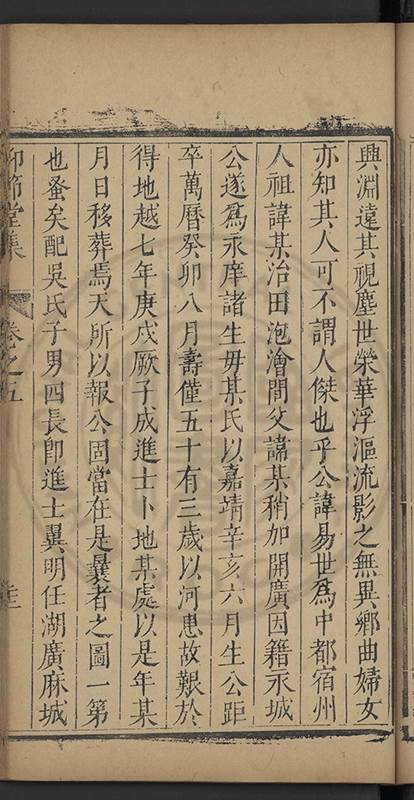 興淵遠其視塵世榮華浮漚流影之無異鄉曲婦女
亦知其人可不謂人傑也乎公諱易世為中都宿州
人祖諱某治田泡澮間父諱某稍加開廣因籍永城
公遂為永庠諸生毋某氏以嘉靖辛亥六月生公距
卒萬曆癸卯八月壽僅五十有三歲以河患故艱於
得地越七年庚戌厥子成進士卜地某處以是年某
月日移葬焉天所以報公固當在是曩者之圖一第
也蚤矣配吳氏子男四長卽進士翼明任湖廣麻城
仰節堂集 卷之五